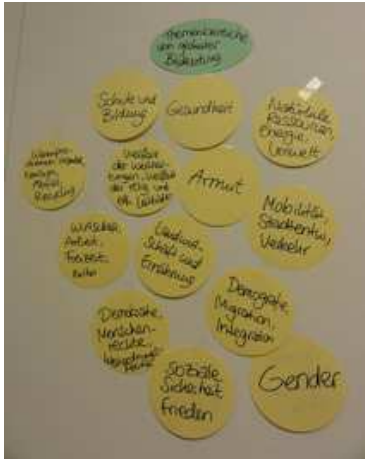 Themenbereiche
von globaler
Bedeutung
Schule und
Bildung
Gesundheit
Natürliche
Ressourcen,
Energie,
Umwelt
Konsum,
Recycling
Vielfalt
der
und
Armut
Mobilität,
Stadtentw.,
Verkehr
Wirtschaft,
Arbeit,
Freizeit
Landwirt-
schaft und
Ernährung
Demografie,
Migration,
Integration
Demokratie,
Menschen-
rechte,
Soziale
Sicherheit
Frieden
Gender